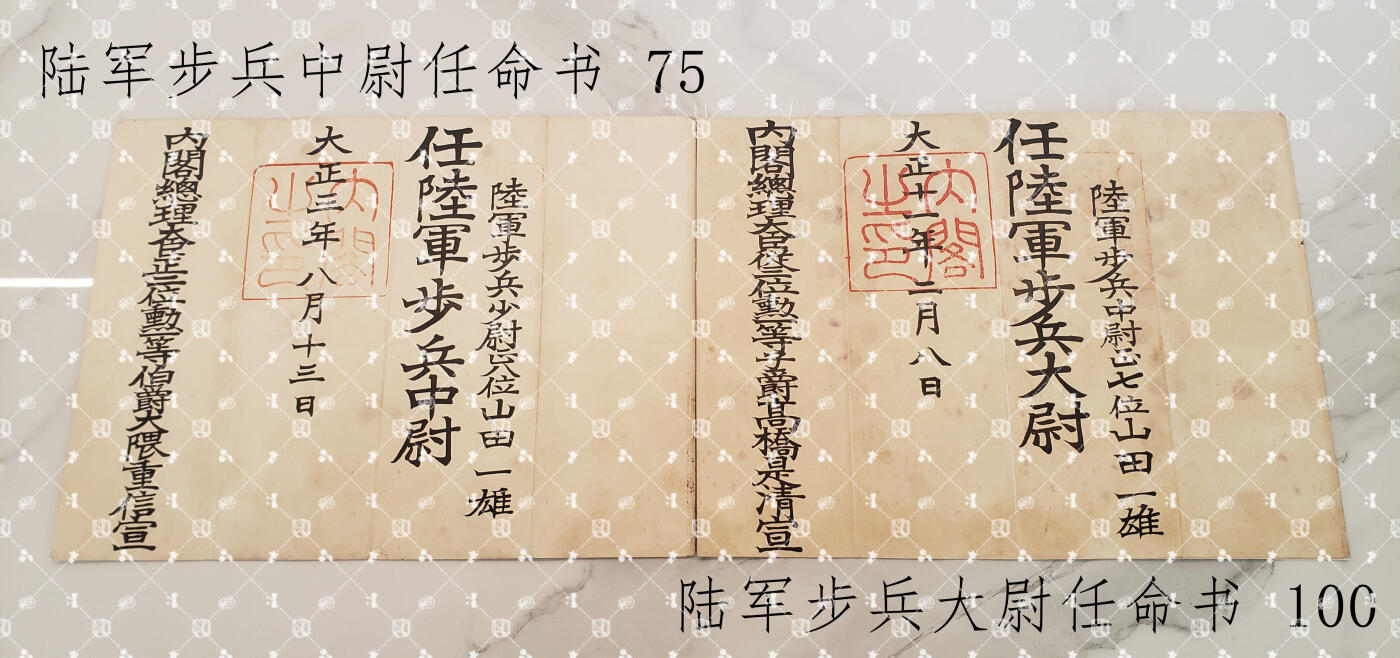 陆军步兵中尉任命书 75
陸軍歩兵少尉正八位山田一雄
任陸軍歩兵中尉
大正三年八月十三日
内閣之印
内閣總理大臣正二位勲一等伯爵大隈重信宣
陸軍歩兵中尉正七位山田一雄
任陸軍歩兵大尉
大正十一年二月八日
内閣之印
内閣總理大臣從二位勲一等子爵髙橋是清宣
陆军步兵大尉任命书 100